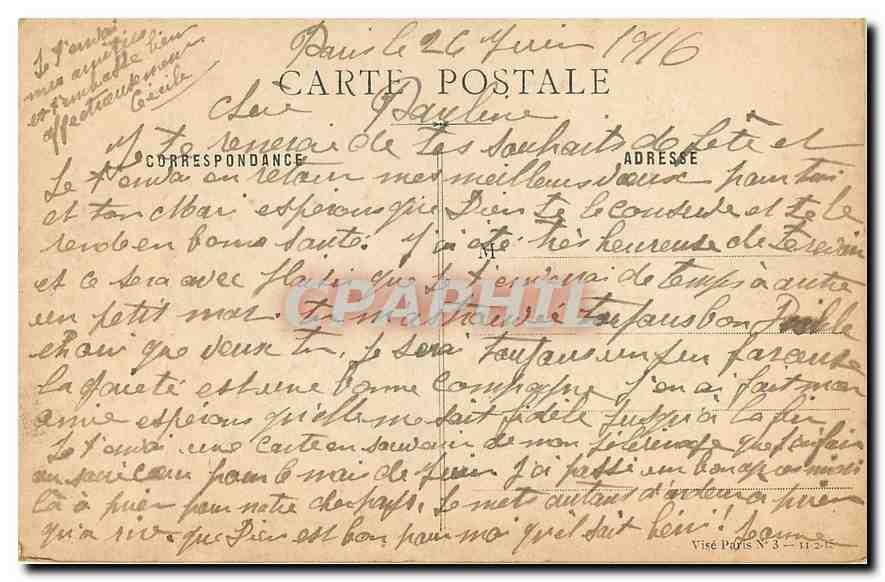 Paris le 26 Juin 1916
Je t'envoi
mes amitiés
et t'embrasse bien
affectueusement
Cécile
CARTE POSTALE
Chère Pauline
Je te remerci de tes souhaits de fête et
CORRESPONDANCE
ADRESSE
Je t'envoi en retour mes meilleurs vœux pour toi
et ton Mari espérons que Dieu te le conserve et te le
rende en bonne santé. J'ai été très heureuse de te revoir
M
et ce sera avec plaisir que je t'enverrai de temps à autre
un petit mot. tu m'as trouvée toujours bon
CPAPHIL
et oui que veux tu, je serai toujours un peu farceuse
la gaieté est une bonne compagne j'en ai fait mon
amie espérons qu'elle me soit fidèle jusqu'à la fin
Je t'envoi une carte en souvenir de mon pèlerinage que j'ai fait
au sacré cœur pour le mois de Juin J'ai passé un bon après midi
là à prier pour notre cher pays. Je mets autant d'ardeur à prier
qu'a rire. que Dieu est bon pour moi qu'il soit béni! Jeanne
Visé Paris N° 3 - 11-2-15